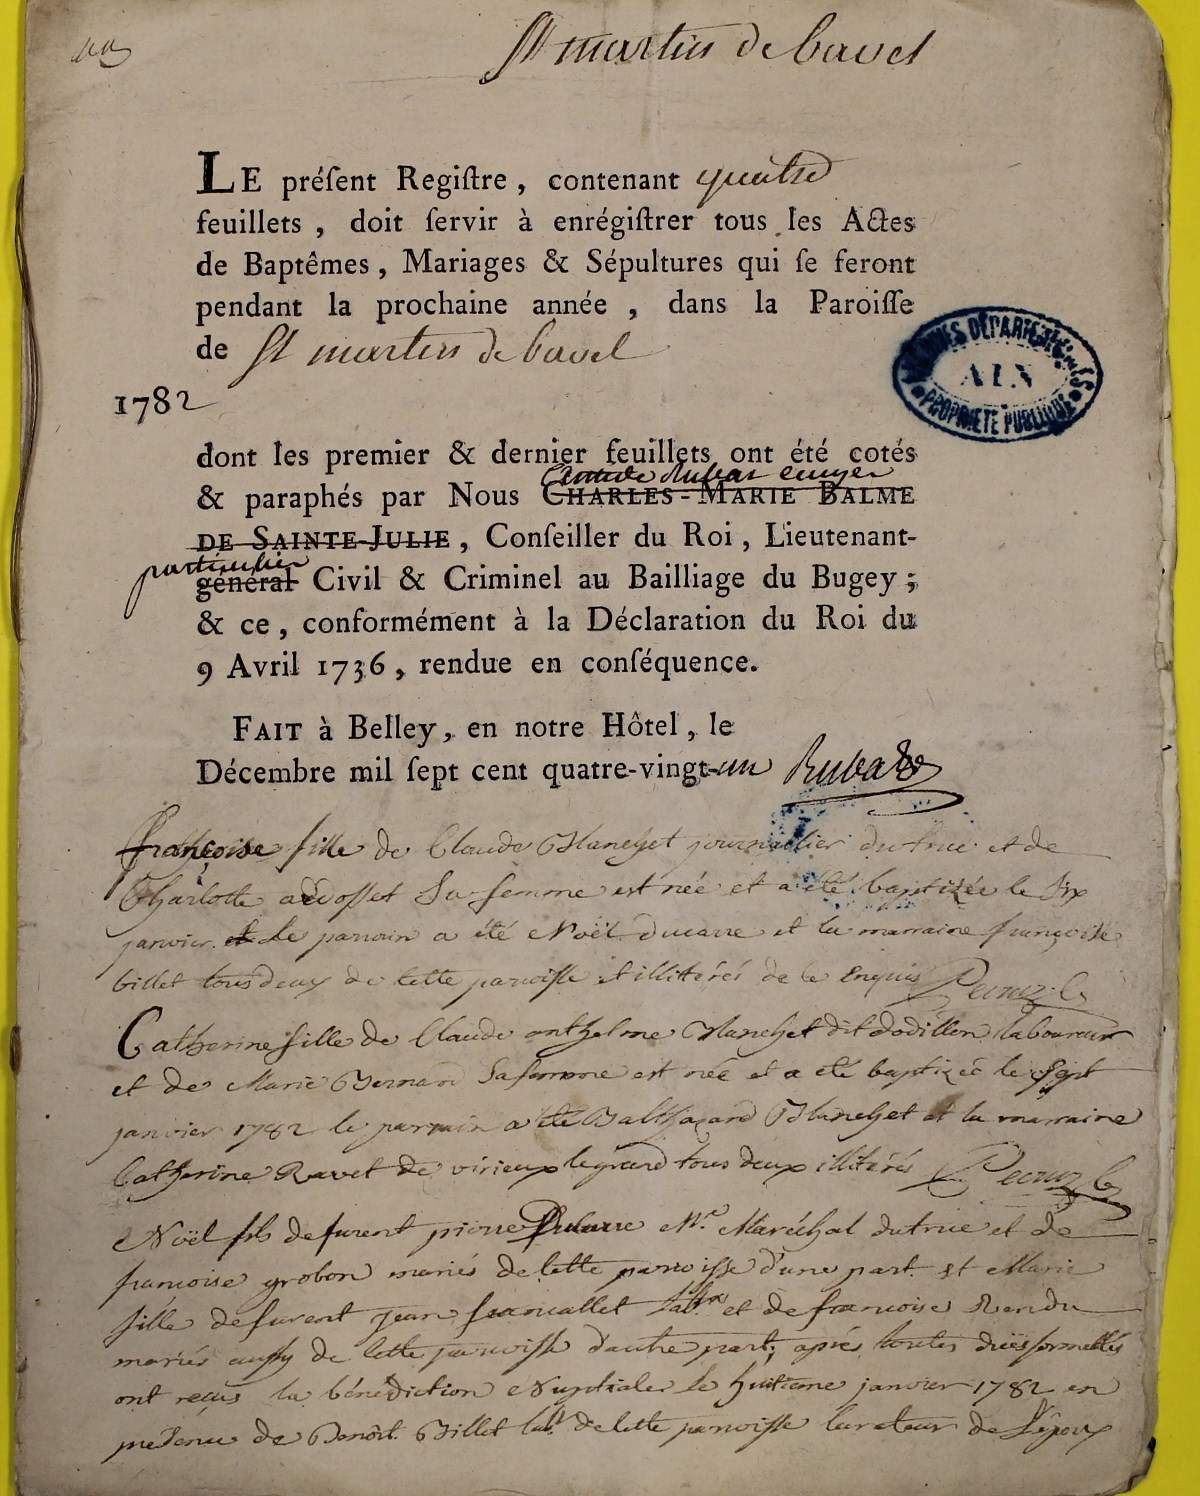 St martin de bavel
LE préſent Regiſtre, contenant quatre
feuillets, doit ſervir à enrégiſtrer tous les Actes
de Baptêmes, Mariages & Sépultures qui ſe feront
pendant la prochaine année, dans la Paroiſſe
de St martin de bavel
ARCHIVES DÉPARTEMENTALES
AIN
PROPRIÉTÉ PUBLIQUE
1782
dont les premier & dernier feuillets ont été cotés
& paraphés par Nous CHARLES-MARIE BALME
DE SAINTE-JULIE, Conſeiller du Roi, Lieutenant-
particulier
général Civil & Criminel au Bailliage du Bugey;
& ce, conformément à la Déclaration du Roi du
9 Avril 1736, rendue en conſéquence.
FAIT à Belley, en notre Hôtel, le
Décembre mil ſept cent quatre-vingt-un Rubat
françoise fille de Claude Blanchet journallier et de
Charlotte sa femme est née et a été baptizée le six
janvier le parrain a été Noël ducarre et la marraine françoise
billet tous deux de cette paroisse et illitérés de ce Enquis
Catherine fille de Claude anthelme Blanchet dit laboureur
et de Marie Bernard sa femme est née et a été baptizée le sept
janvier 1782 le parrain a été Balthazard Blanchet et la marraine
Catherine Ravet de virieux le grand tous deux illitérés
Noël fils de furent pierre Ducarre Me Maréchal et de
françoise grobon mariés de cette paroisse d'une part et Marie
fille de furent jean labr et de francoise Rendu
mariés aussy de cette paroisse d'autre part, après toutes formalités
ont reçus la bénédiction Nuptiale le huitieme janvier 1782 en
présence de Benoît Billet labr de cette paroisse Curateur de L'époux